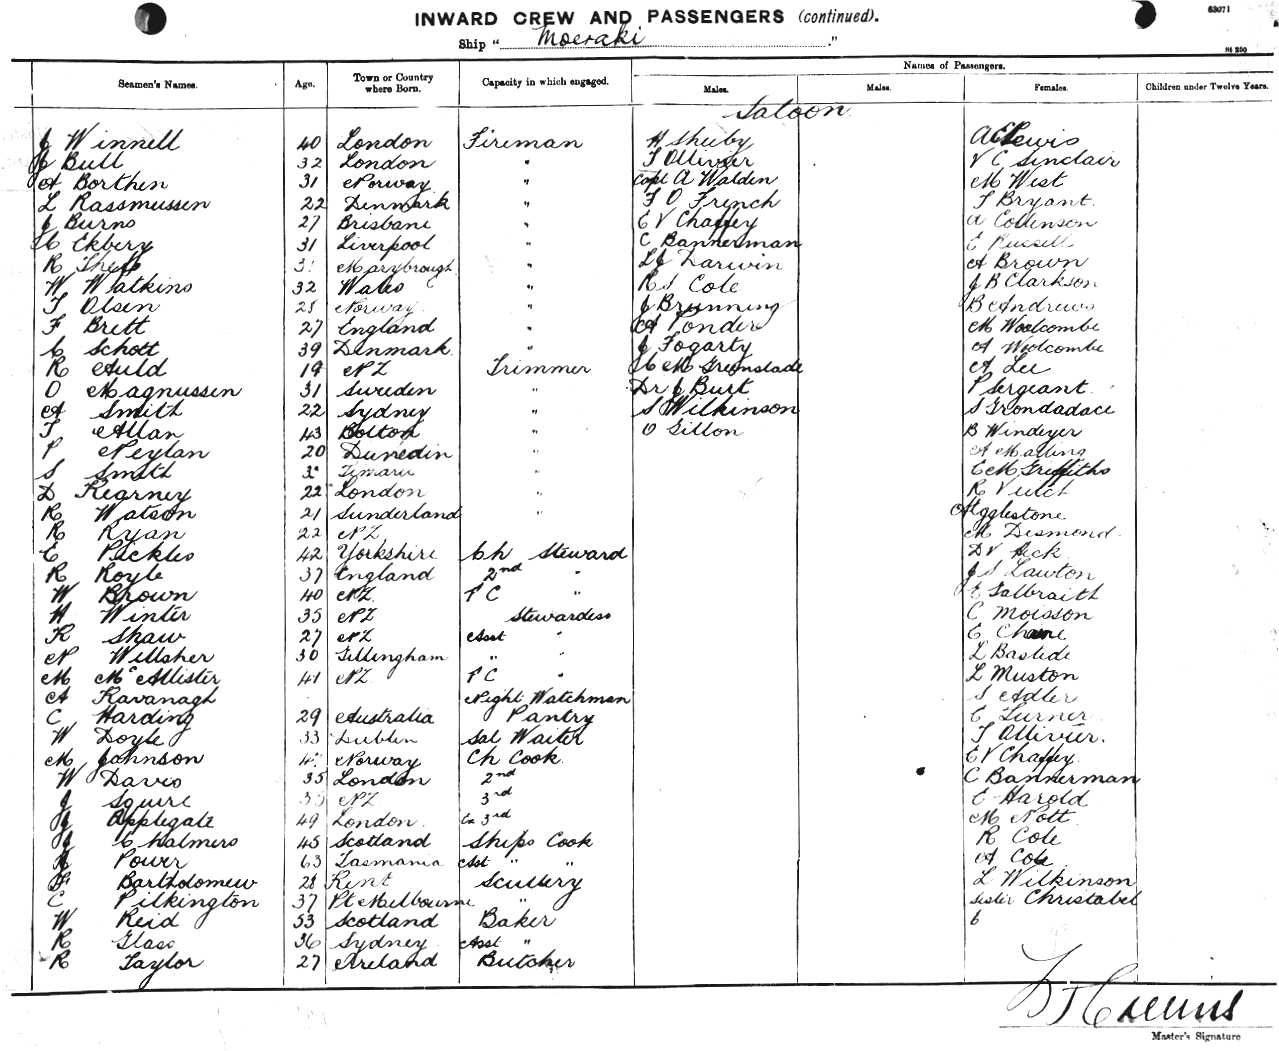 63071
INWARD CREW AND PASSENGERS (continued).
Ship " Moeraki ."
Names of Passengers.
Seamen's Names. Age. Town or Country where Born. Capacity in which engaged. Males. Males. Females. Children under Twelve Years.
Saloon
J Winnell 40 London Fireman H Sheeby A E Lewis
J Bull 32 London " T Ollivier V C Sinclair
A Borthen 31 Norway " Capt A Walden M West
L Rassmussen 22 Denmark " F O French T Bryant
J Burns 27 Brisbane " E V Chaffey A Collinson
H Ekbery 31 Liverpool " C Bannerman E Russell
R Marybrough " L J Darwin A Brown
W Watkins 32 Wales " R S Cole J B Clarkson
T Olsen 28 Norway " J Brunning B Andrews
F Brett 27 England " A Ponder M Woolcombe
C Schott 39 Denmark " J Fogarty A Woolcombe
R Auld 19 NZ Trimmer H M Greenslade A Lee
O Magnussen 31 Sweden " Dr J Burt P Sergeant
A Smith 22 Sydney " S Wilkinson S Grondadaci
T Allan 43 Bolton " O Gillon B Windeyer
P Neylan 20 Dunedin " A Marling
S Smith Timaru " E M Griffiths
D Kearney 22 London " R Veitch
R Watson 21 Sunderland " A Egglestone
R Ryan 22 NZ M Desmond
E Pickles 42 Yorkshire Ch Steward D V Hick
R Royle 37 England 2nd " J S Lawton
W Brown 40 NZ P C " E Galbraith
H Winter 35 NZ Stewardess C Moisson
K Shaw 27 NZ Asst " E
N Willsher 30 Gillingham " " L Bastide
M McAllister 41 NZ P C " L Muston
A Kavanagh Night Watchman S Adler
C Harding 29 Australia Pantry E Turner
W Doyle 33 Dublin Sal Waiter T Ollivier.
M Johnson Norway Ch Cook E V Chaffey
W Davis 35 London 2nd C Bannerman
J Squire NZ 3rd E Harold
J Applegate 49 London Ex 3rd M Nott
J Chalmers 45 Scotland Ships Cook R Cole
Power 63 Tasmania Asst " " A Cole
F Bartholomew 28 Kent Scullery L Wilkinson
C Pilkington 37 Pt Melbourne " Sister Christabel
W Reid 53 Scotland Baker 6
R Glass 36 Sydney Asst "
R Taylor 27 Ireland Butcher
Master's Signature